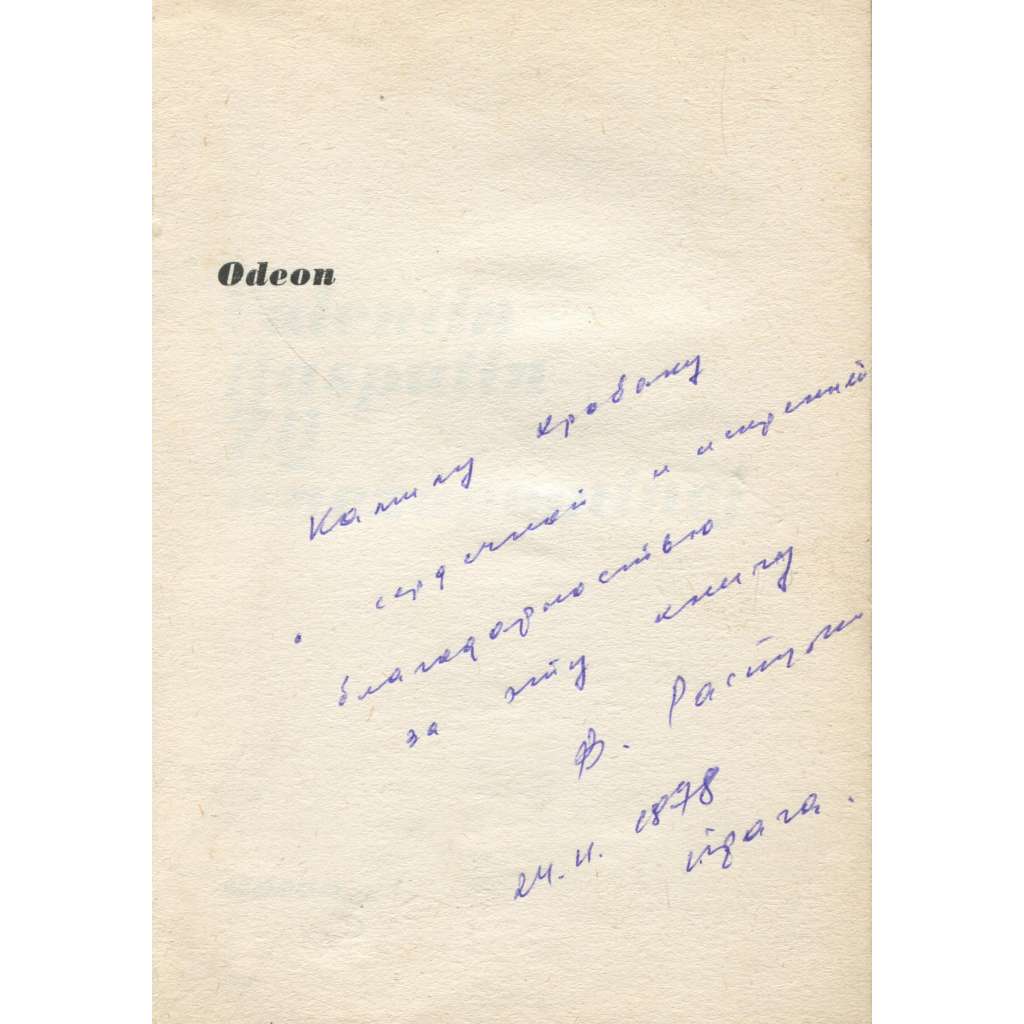 Odeon
Камилу Хробаку
с сердечной и искренней
благодарностью
за эту книгу
В. Распутин
24.II. 1978
Прага.